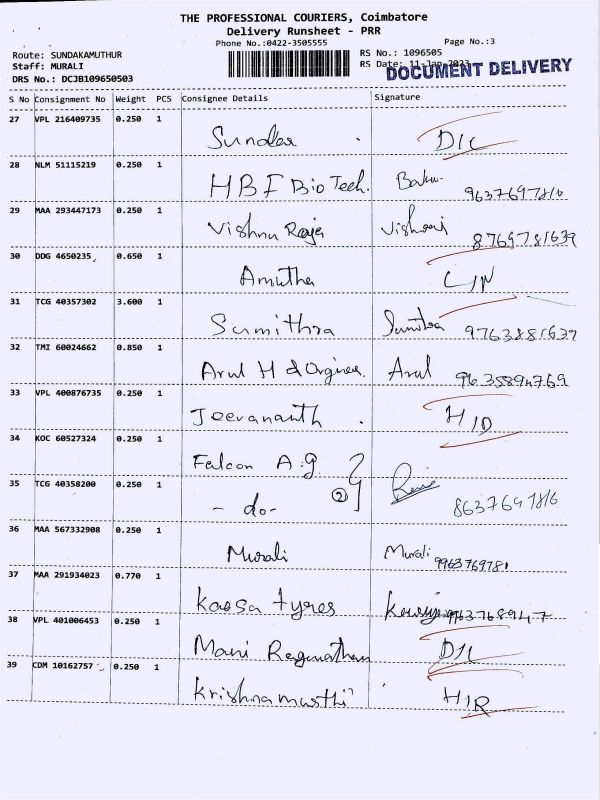 THE PROFESSIONAL COURIERS, Coimbatore
Delivery Runsheet - PRR
Phone No.:0422-3505555
Page No.:3
Route: SUNDAKAMUTHUR
Staff: MURALI
DRS No.: DCJB109650503
RS No.: 1096505
RS Date: 11-Jan-2023
DOCUMENT DELIVERY
S No Consignment No Weight PCS Consignee Details Signature
27 VPL 216409735 0.250 1
Sundar D/L
28 NLM 51115219 0.250 1
HBF BioTech. 9637697816
29 MAA 293447173 0.250 1
Vishnu Raja 8769781639
30 DDG 4650235 0.650 1
Amutha
31 TCG 40357302 3.600 1
Sumithra 9763881639
32 TMI 60024662 0.850 1
Arul H Arul
33 VPL 400876735 0.250 1
Jeevananth. H/D
34 KOC 60527324 0.250 1
Falcon A.g
35 TCG 40358200 0.250 1
- do- 2 8637697816
36 MAA 567332908 0.250 1
Murali Murali 996376978
37 MAA 291934023 0.770 1
tyres
38 VPL 401006453 0.250 1
Mani Ragunathan D/L
39 CDM 10162757 0.250 1
Krishnamurthi H/R